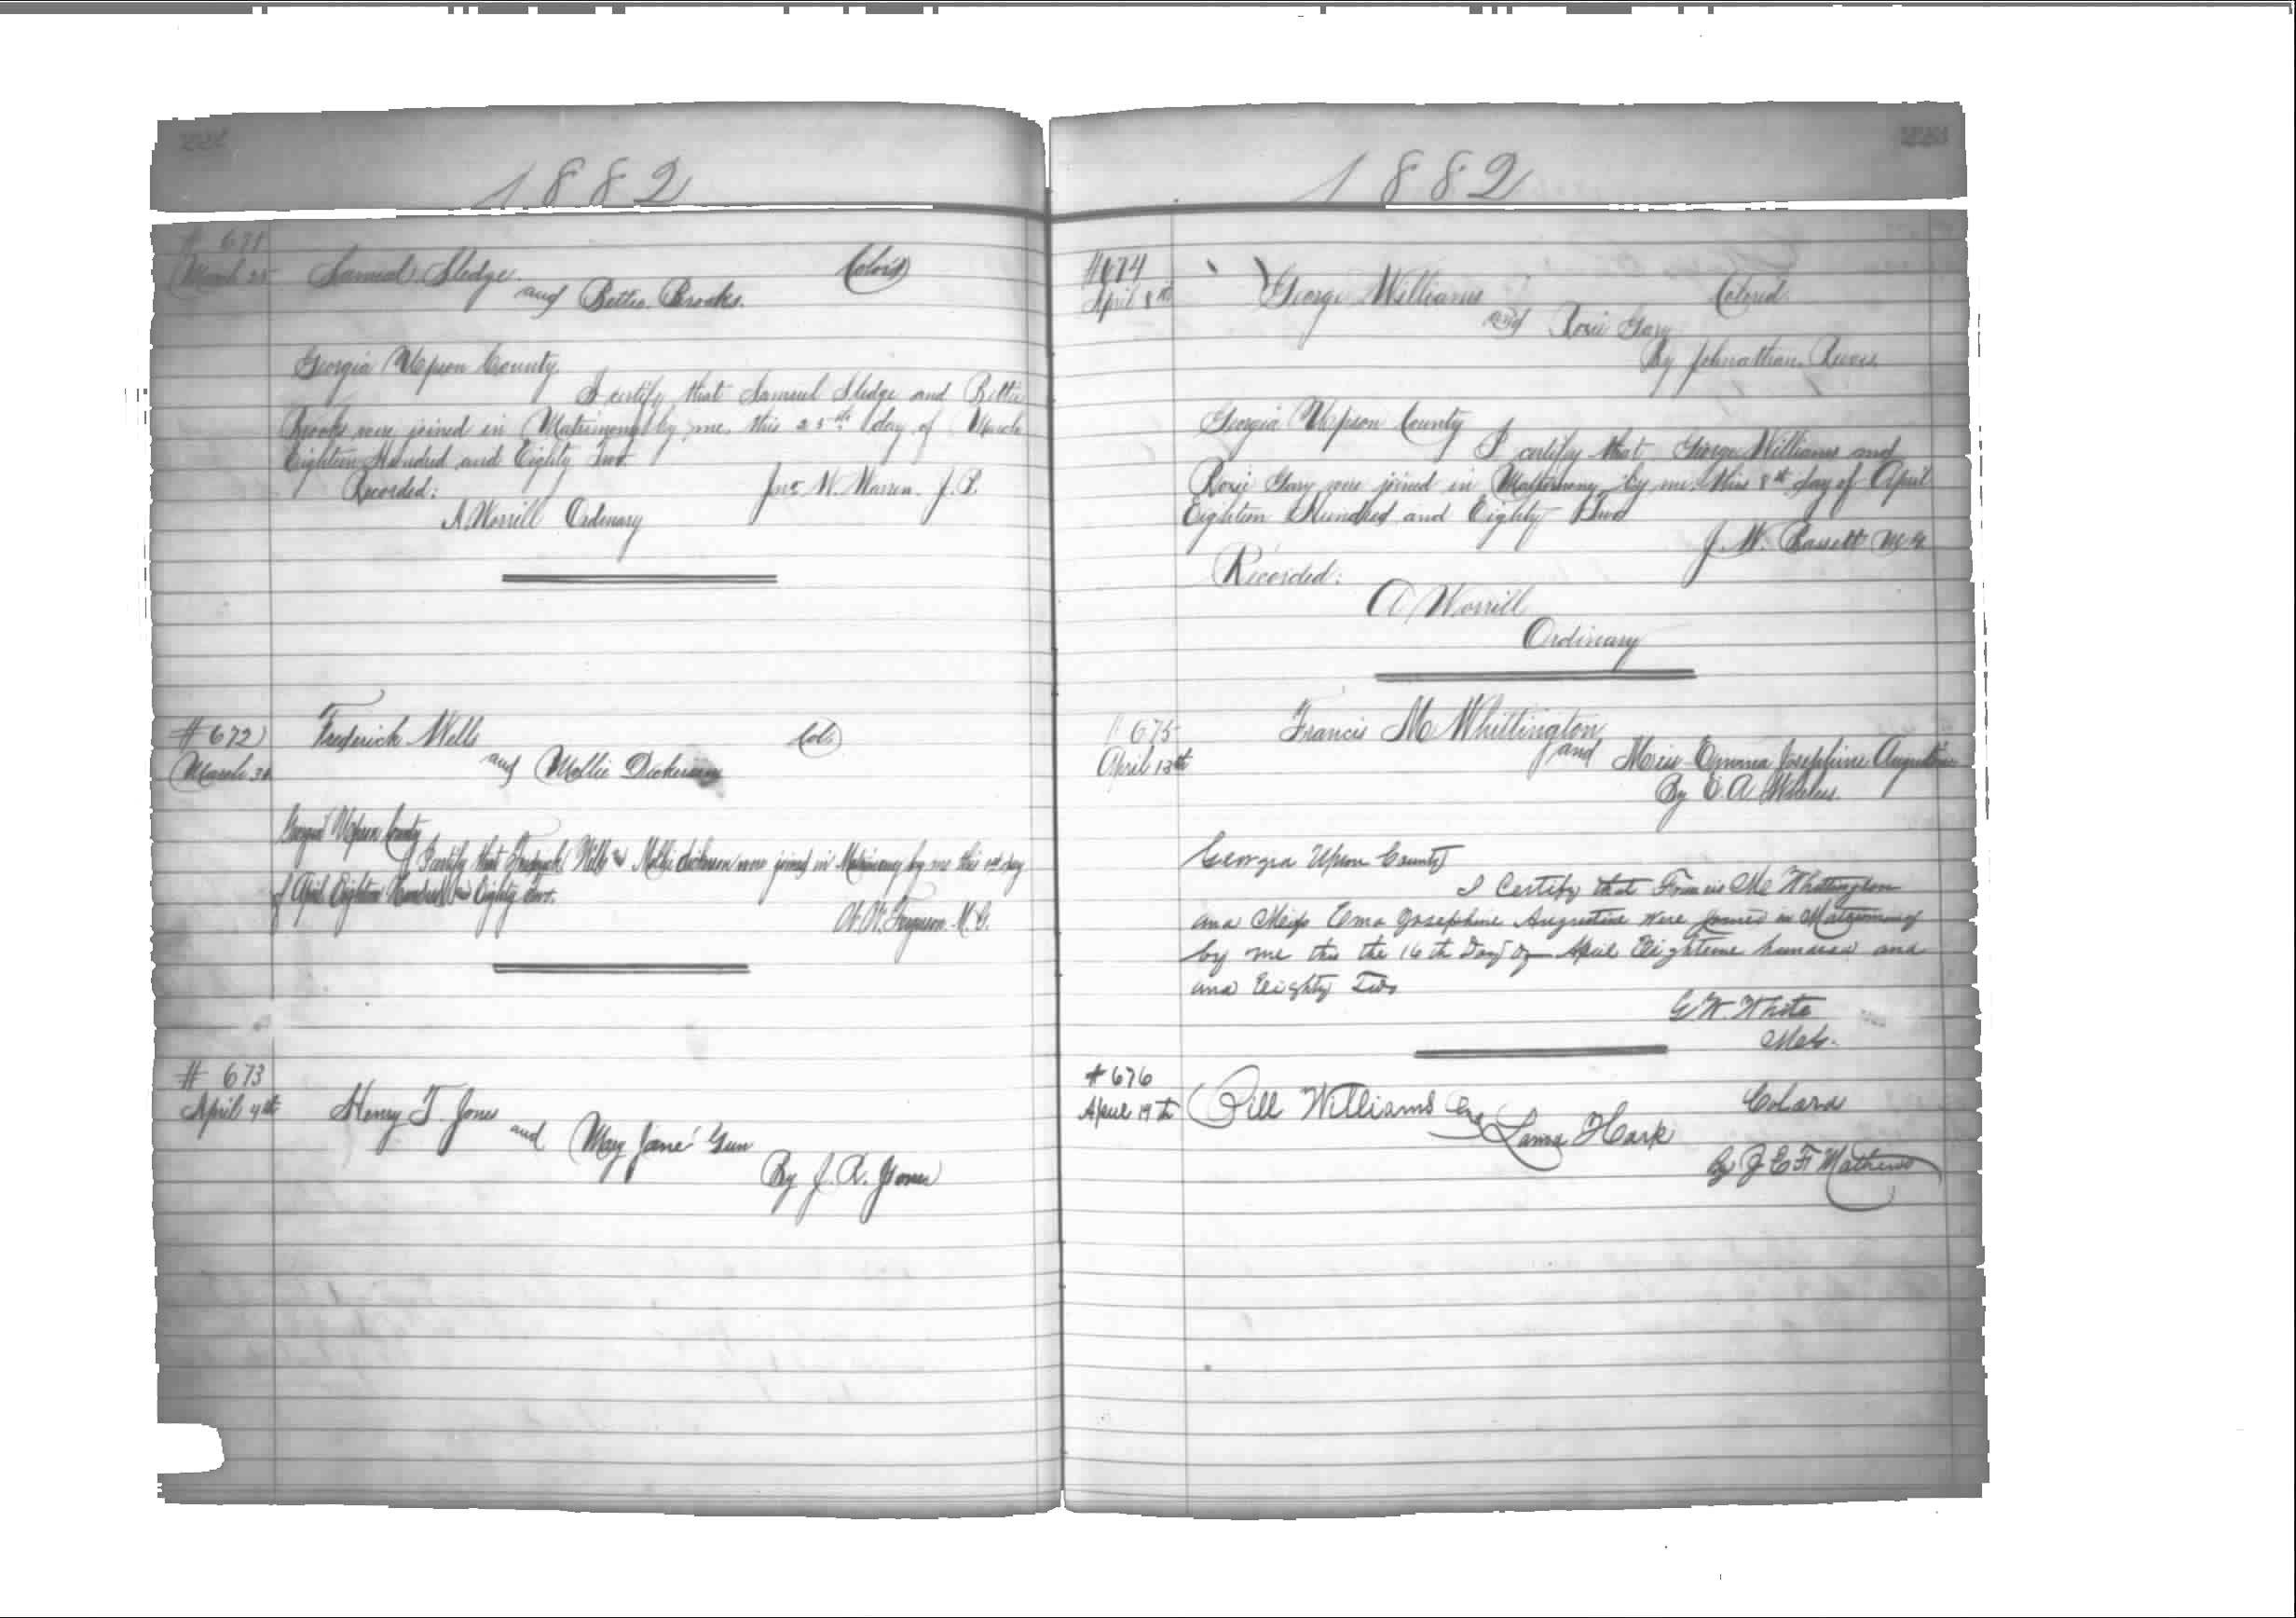 1882
# 671
March 25
Samual Sledge (Colord)
and Bettie Brooks.
Georgia Upson County.
I certify that Samuel Sledge and Bettie
Brooks were joined in Matrimony by me, this 25th day of March
Eighteen Hundred and Eighty Two.
Recorded: Jno W. Warren. J. P.
A Worrill Ordinary
# 672
March 30
Frederick Wells (Col)
and Mollie Dickerson
Georgia Upson County
I Certify that Fredrick Wells & Mollie dickerson were joined in Matrimony by me this day
of April Eighteen Hundred and Eighty Two.
Ferguson. M. G.
# 673
April 4th
Henry T. Jones
and Mary Jane Gun
By J. R. Jones
1882
#674
April 8th
George Williams Colored
and Rosie Gary
By Johnathan Reeves
Georgia Upson County
I certify that George Williams and
Rosie Gary were joined in Matrimony by me, this 8th day of April
Eighteen Hundred and Eighty Two
J. W. Bassett M.G.
Recorded:
A Worrill
Ordinary
# 675
April 13th
Francis M Whittington
and Miss Emma Josephine Augustine
By E. A.
Georgia Upson County
I Certify that Francis M Whittington
and Miss Ema Josephine Augustine were joined in Matrimony
by me this the 16th Day of April Eighteene hundred and
and Eighty Two
G W. White
MG.
# 676
April 19th
Bill Williams and Colard
Laura Hark
By J E F Mathews